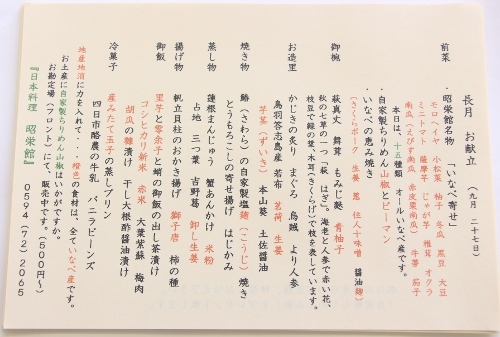 長月 お献立 （九月 二十七日）
前菜 ・昭栄館名物 「いなべ寄せ」
モロヘイヤ 小松菜 柚子 冬瓜 黒豆 大豆
ミニトマト 薩摩芋 じゃが芋 椎茸 オクラ
南瓜（えびす南瓜 赤皮栗南瓜） 牛蒡 茄子
本日は、十五種類 オールいなべ産です。
・自家製ちりめん山椒とピーマン
・いなべの恵み焼き
（さくらポーク 生姜 葱 住人十味噌 醤油麹）
御椀 萩真丈 舞茸 もみじ麩 青柚子
秋の七草の一つ「萩 はぎ」。海老と人参で赤い花、
枝豆で緑の葉、木耳（きくらげ）で枝を表しています。
お造里 かじきの炙り まぐろ 烏賊 より人参
鳥羽答志島産 若布 茗荷 生姜
芋茎（ずいき） 本山葵 土佐醤油
焼き物 鰆（さわら）の自家製塩麹（こうじ）焼き
とうもろこしの寄せ揚げ はじかみ
蒸し物 蓮根まんじゅう 蟹あんかけ 米粉
占地 三つ葉 吉野葛 卸し生姜
揚げ物 帆立貝柱のおかき揚げ 獅子唐 柿の種
御飯 里芋と零余子と蛸の御飯の出し茶漬け
コシヒカリ新米 赤米 大葉紫蘇 梅肉
胡瓜の麹漬け 干し大根酢醤油漬け
冷菓子 産みたて玉子の蒸しプリン
四日市酪農の牛乳 バニラビーンズ
地産地消に力を入れて・・・橙色の食材は、全ていなべ産です。
お土産に自家製ちりめん山椒はいかがですか。
お勘定場（フロント）にて、販売中です。（５００円〜）
『日本料理 昭栄館』 ０５９４（７２）２０６５